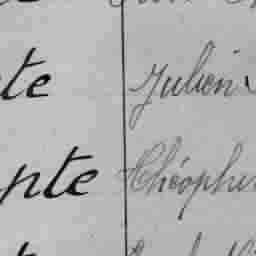 te Julien
pte Théophi